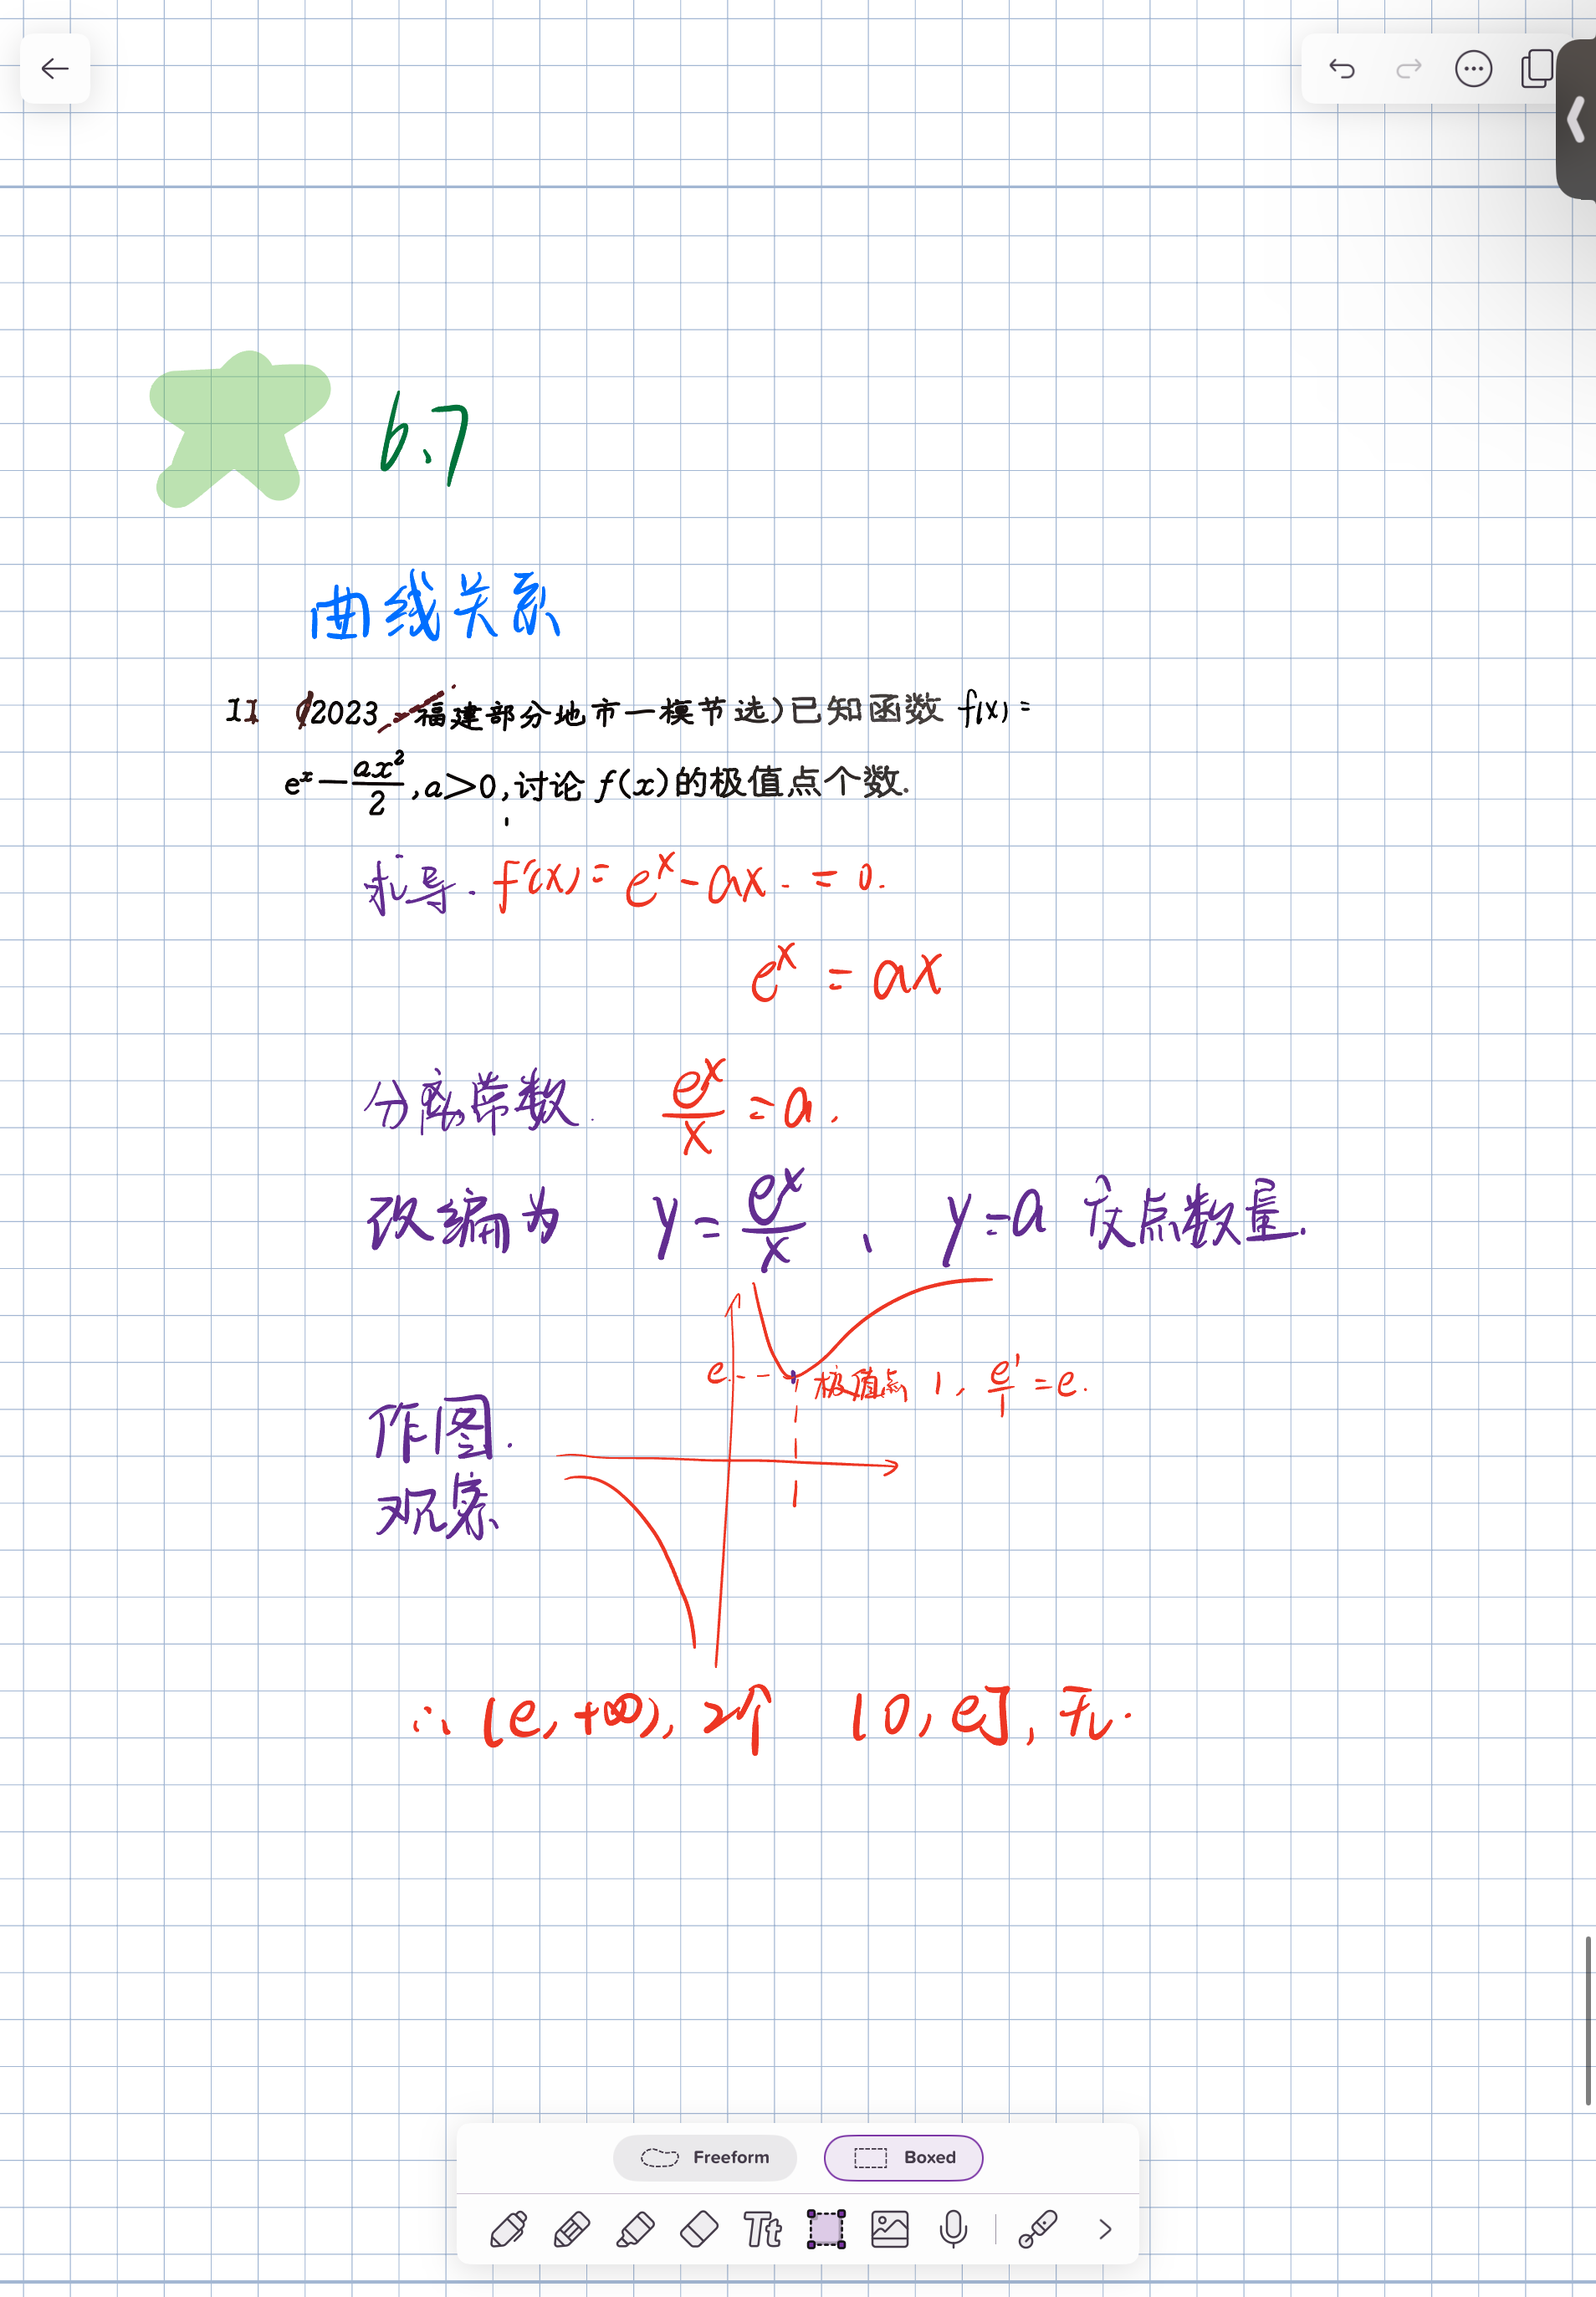 6.7
曲线关系
11 (2023·福建部分地市一模节选)已知函数 f(x)=
eˣ-ax²/2,a>0,讨论 f(x)的极值点个数.
求导. f'(x)=eˣ-ax.=0.
eˣ=ax
分离常数. eˣ/x=a.
改编为 y=eˣ/x、y=a 交点数量.
e 极值点 1, e¹/1=e.
作图.
观察
1
∴(e,+∞),2个 (0,e],无.
Freeform Boxed
Tt